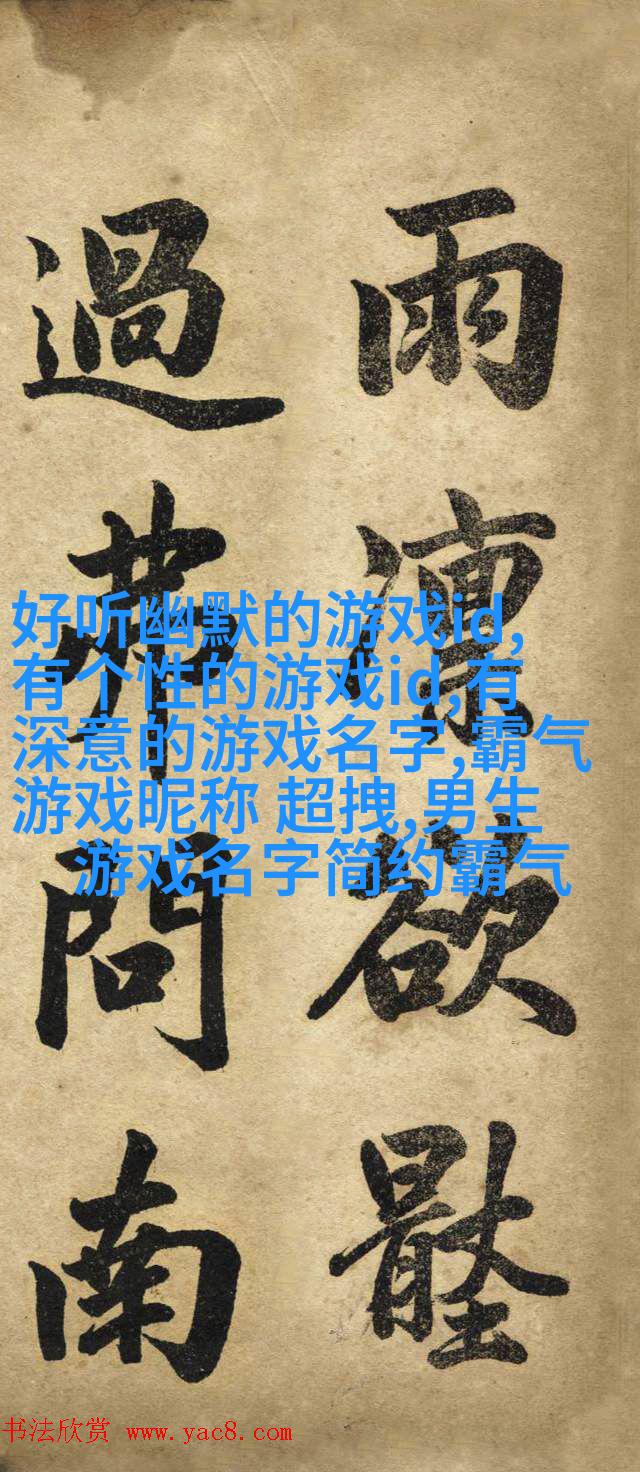 雨凛欲
過弗問南
好听幽默的游戏id,
有个性的游戏id,有
深意的游戏名字,霸气
游戏昵称 超拽,男生
游戏名字简约霸气
书法欣赏 www.yac8.com